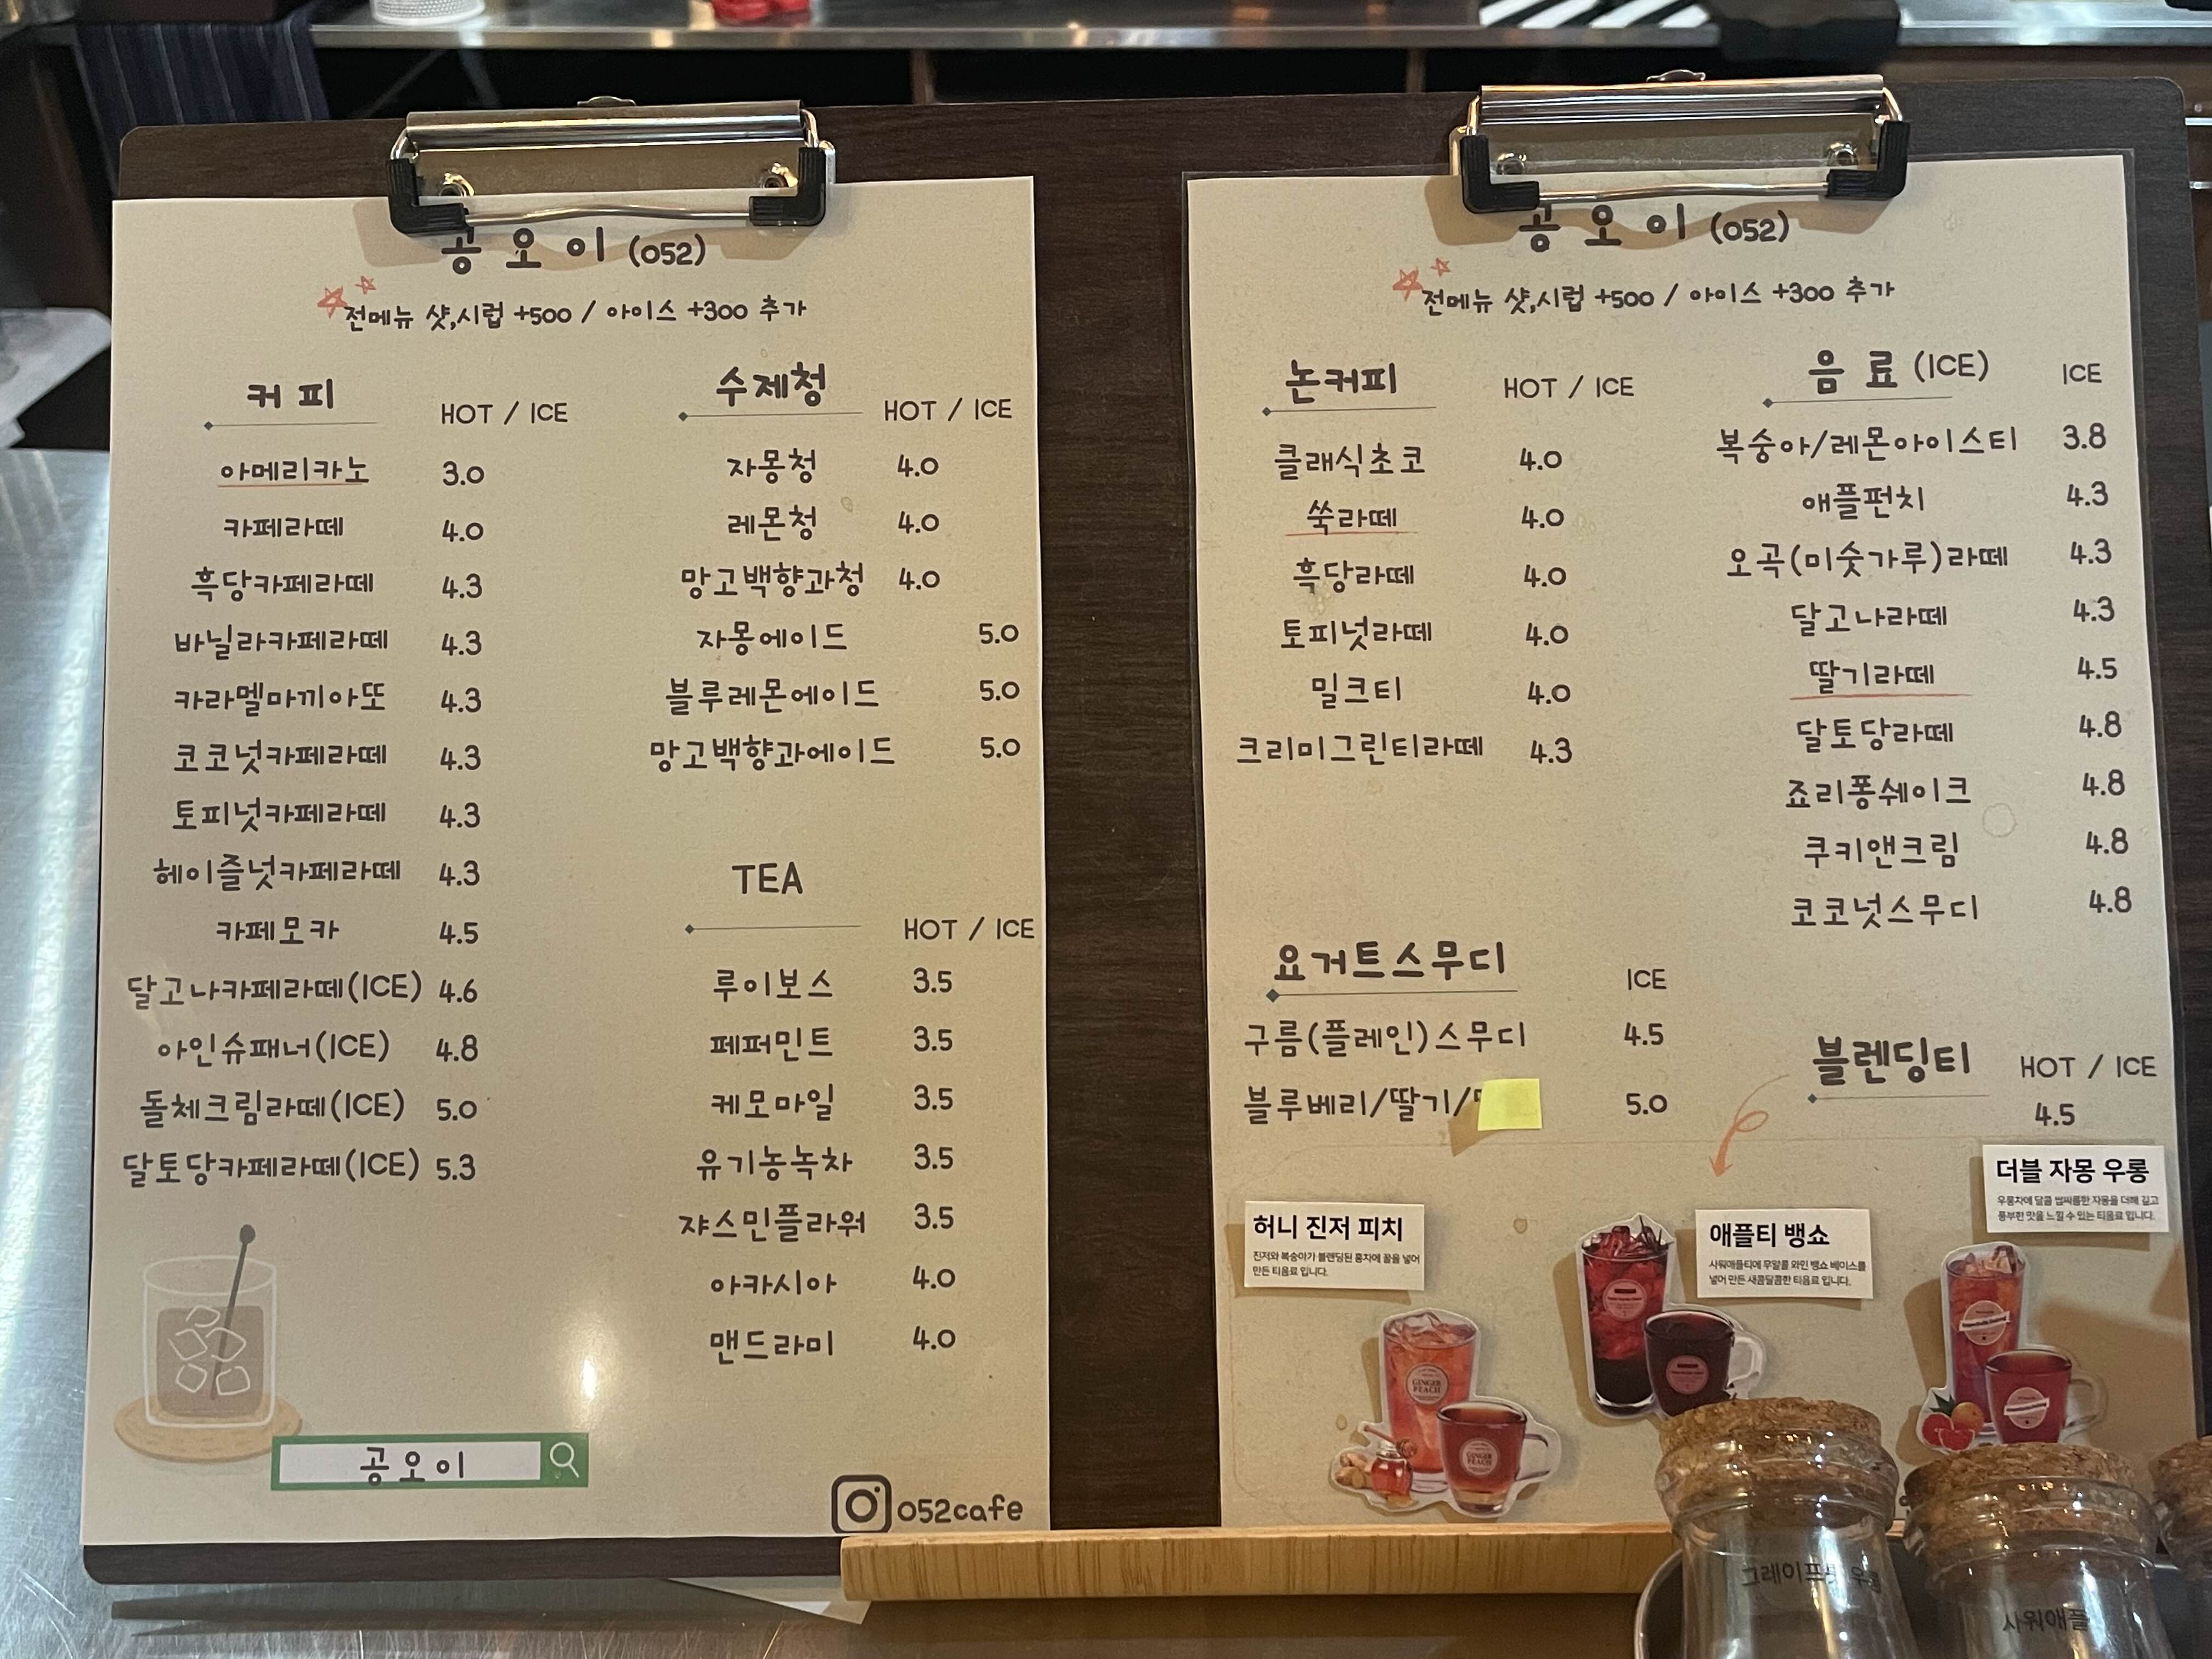 공오이 (052)
전메뉴 샷,시럽 +500 / 아이스 +300 추가
커피 HOT / ICE
아메리카노 3.0
카페라떼 4.0
흑당카페라떼 4.3
바닐라카페라떼 4.3
카라멜마끼아또 4.3
코코넛카페라떼 4.3
토피넛카페라떼 4.3
헤이즐넛카페라떼 4.3
카페모카 4.5
달고나카페라떼(ICE) 4.6
아인슈패너(ICE) 4.8
돌체크림라떼(ICE) 5.0
달토당카페라떼(ICE) 5.3
공오이
수제청 HOT / ICE
자몽청 4.0
레몬청 4.0
망고백향과청 4.0
자몽에이드 5.0
블루레몬에이드 5.0
망고백향과에이드 5.0
TEA
HOT / ICE
루이보스 3.5
페퍼민트 3.5
케모마일 3.5
유기농녹차 3.5
쟈스민플라워 3.5
아카시아 4.0
맨드라미 4.0
052cafe
공오이 (052)
전메뉴 샷,시럽 +500 / 아이스 +300 추가
논커피 HOT / ICE
클래식초코 4.0
쑥라떼 4.0
흑당라떼 4.0
토피넛라떼 4.0
밀크티 4.0
크리미그린티라떼 4.3
요거트스무디 ICE
구름(플레인)스무디 4.5
블루베리/딸기/ 5.0
음료 (ICE) ICE
복숭아/레몬아이스티 3.8
애플펀치 4.3
오곡(미숫가루)라떼 4.3
달고나라떼 4.3
딸기라떼 4.5
달토당라떼 4.8
죠리퐁쉐이크 4.8
쿠키앤크림 4.8
코코넛스무디 4.8
블렌딩티 HOT / ICE
4.5
허니 진저 피치
진저와 복숭아가 블렌딩된 홍차에 꿀을 넣어
만든 티음료 입니다.
애플티 뱅쇼
사워애플티에 무알콜 와인 뱅쇼 베이스를
넣어 만든 새콤달콤한 티음료 입니다.
더블 자몽 우롱
우롱차에 달콤 쌉싸름한 자몽을 더해 깊고
풍부한 맛을 느낄 수 있는 티음료 입니다.
GINGER
PEACH
GINGER
PEACH
사워애플